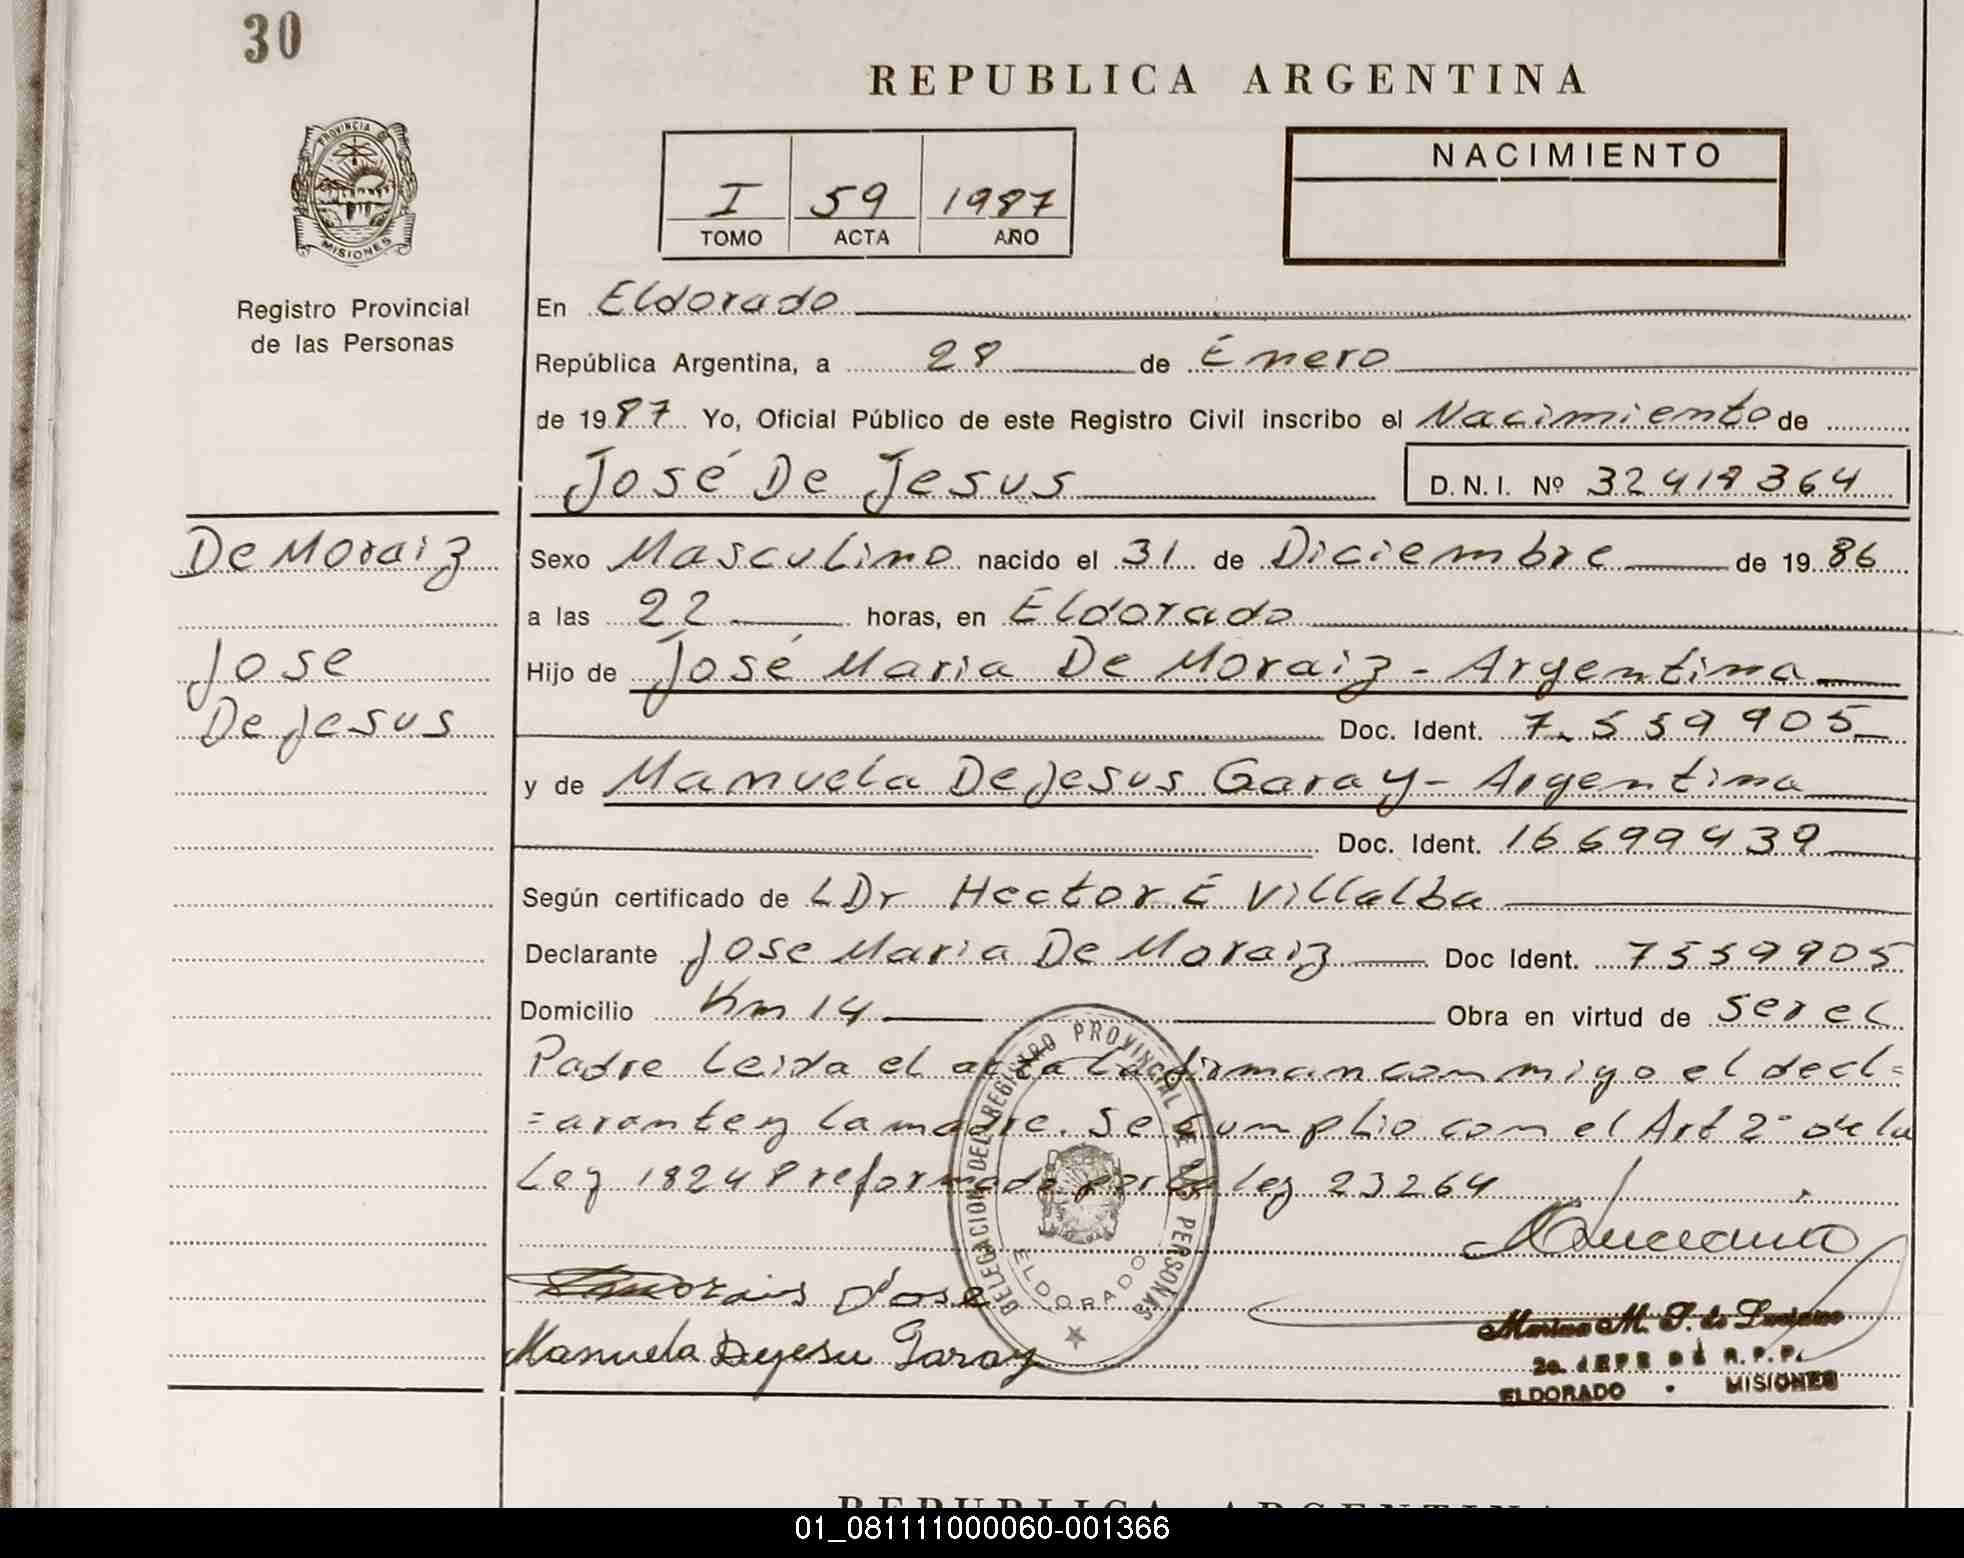 30
REPUBLICA ARGENTINA
PROVINCIA DE MISIONES
I 59 1987
TOMO ACTA AÑO
NACIMIENTO
Registro Provincial
de las Personas
En Eldorado
República Argentina, a 28 de Enero
de 1987 Yo, Oficial Público de este Registro Civil inscribo el Nacimiento de
José De Jesus D.N.I. Nº 32418364
De Moraiz
Jose
De Jesus
Sexo Masculino nacido el 31 de Diciembre de 1986
a las 22 horas, en Eldorado
Hijo de José Maria De Moraiz - Argentina
Doc. Ident. 7.559905
y de Manuela De Jesus Garay - Argentina
Doc. Ident. 16699439
Según certificado de LDr Hector E Villalba
Declarante Jose Maria De Moraiz Doc Ident. 7559905
Domicilio Km 14 Obra en virtud de ser el
Padre Leida el acta la firman conmigo el decl=
=arante y la madre. Se cumplio con el Art 2º de la
Ley 18248 reformado por la ley 23264
DELEGACION DEL REGISTRO PROVINCIAL DE LAS PERSONAS
ELDORADO
Morais Jose
Manuela Dejesu Garay
Marina M. P. de Luciano
2a. JEFE DE R.P.P.
ELDORADO · MISIONES
REPUBLICA ARGENTINA
01_081111000060-001366